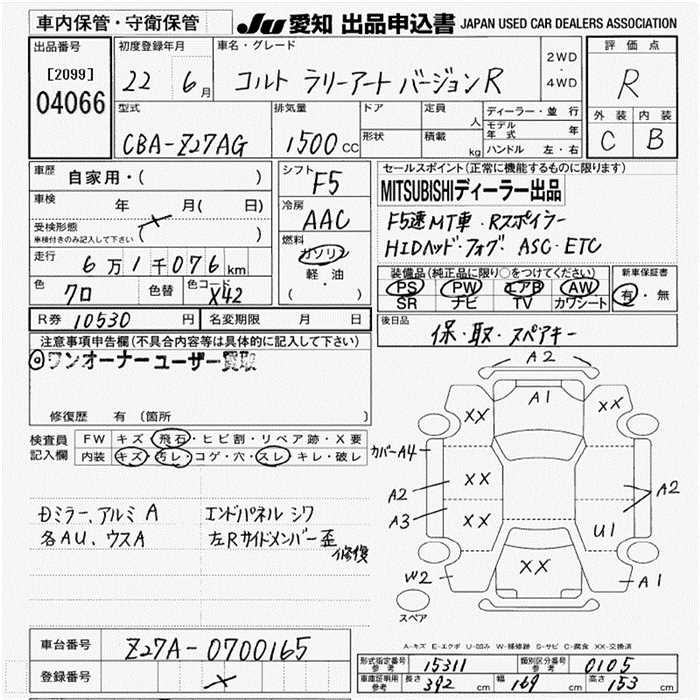 車内保管・守衛保管 JU 愛知 出品申込書 JAPAN USED CAR DEALERS ASSOCIATION
出品番号 [2099] 04066
初度登録年月 22 6月
車名・グレード コルト ラリーアート バージョンR
2WD・4WD
評価点 R
外装 内装
C B
型式 CBA-Z27AG
排気量 1500cc
ドア 形状
定員 人
積載 kg
ディーラー・並行
モデル年式 年
ハンドル 左・右
車歴 自家用・( )
車検 年 月( 日)
受検形態
車検付きのみ記入して下さい ( )
走行 6万1千076km
色 クロ 色替 色コード X42
R券 10530円 名変期限 月 日
シフト F5
冷房 AAC
燃料 ガソリン
軽・油
( )
セールスポイント(正常に機能するものに限ります)
MITSUBISHIディーラー出品
F5速MT車・Rスポイラー
HIDヘッド・フォグ・ASC・ETC
装備品(純正品に限り○をつけてください)
PS PW エアB AW
SR ナビ TV カワシート
新車保証書
有・無
後日品 保・取・スペアキー
注意事項申告欄(不具合内容等は具体的に記入して下さい)
◎ワンオーナー ユーザー買取
修復歴 有(箇所
検査員記入欄
FW キズ 飛石・ヒビ割・リペア跡・X要
内装 キズ・汚レ・コゲ・穴・スレ・キレ・破レ
ミラー、アルミ A エンドパネル シワ
各AU、ウスA 左Rサイドメンバー歪
修復
A2
A1
XX XX
カバーA4
XX
A2 A2
A3 XX
U1
XX
W2 A1
スペア
A-キズ E-エクボ U-凹み W-補修跡 S-サビ C-腐食 XX-交換済
車台番号 Z27A-0700165
登録番号
形式指定番号 参考 15311 類別区分番号 参考 0105
車庫証明用 参考 長さ 392cm 幅 169cm 高さ 153cm